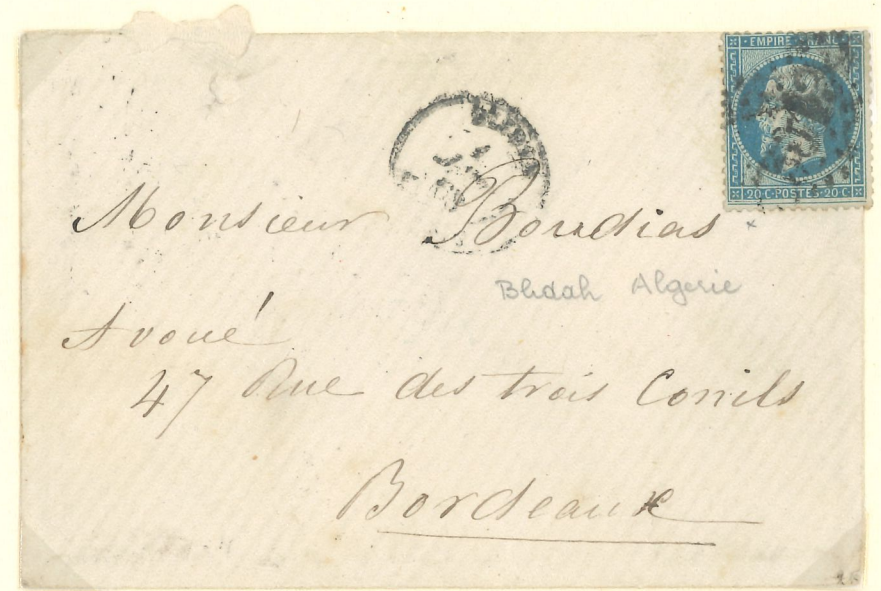 EMPIRE FRANC
20·C·POSTES·20·C·
Monsieur Boudias
Blidah Algerie
Avoué
47 Rue des trois Conils
Bordeaux